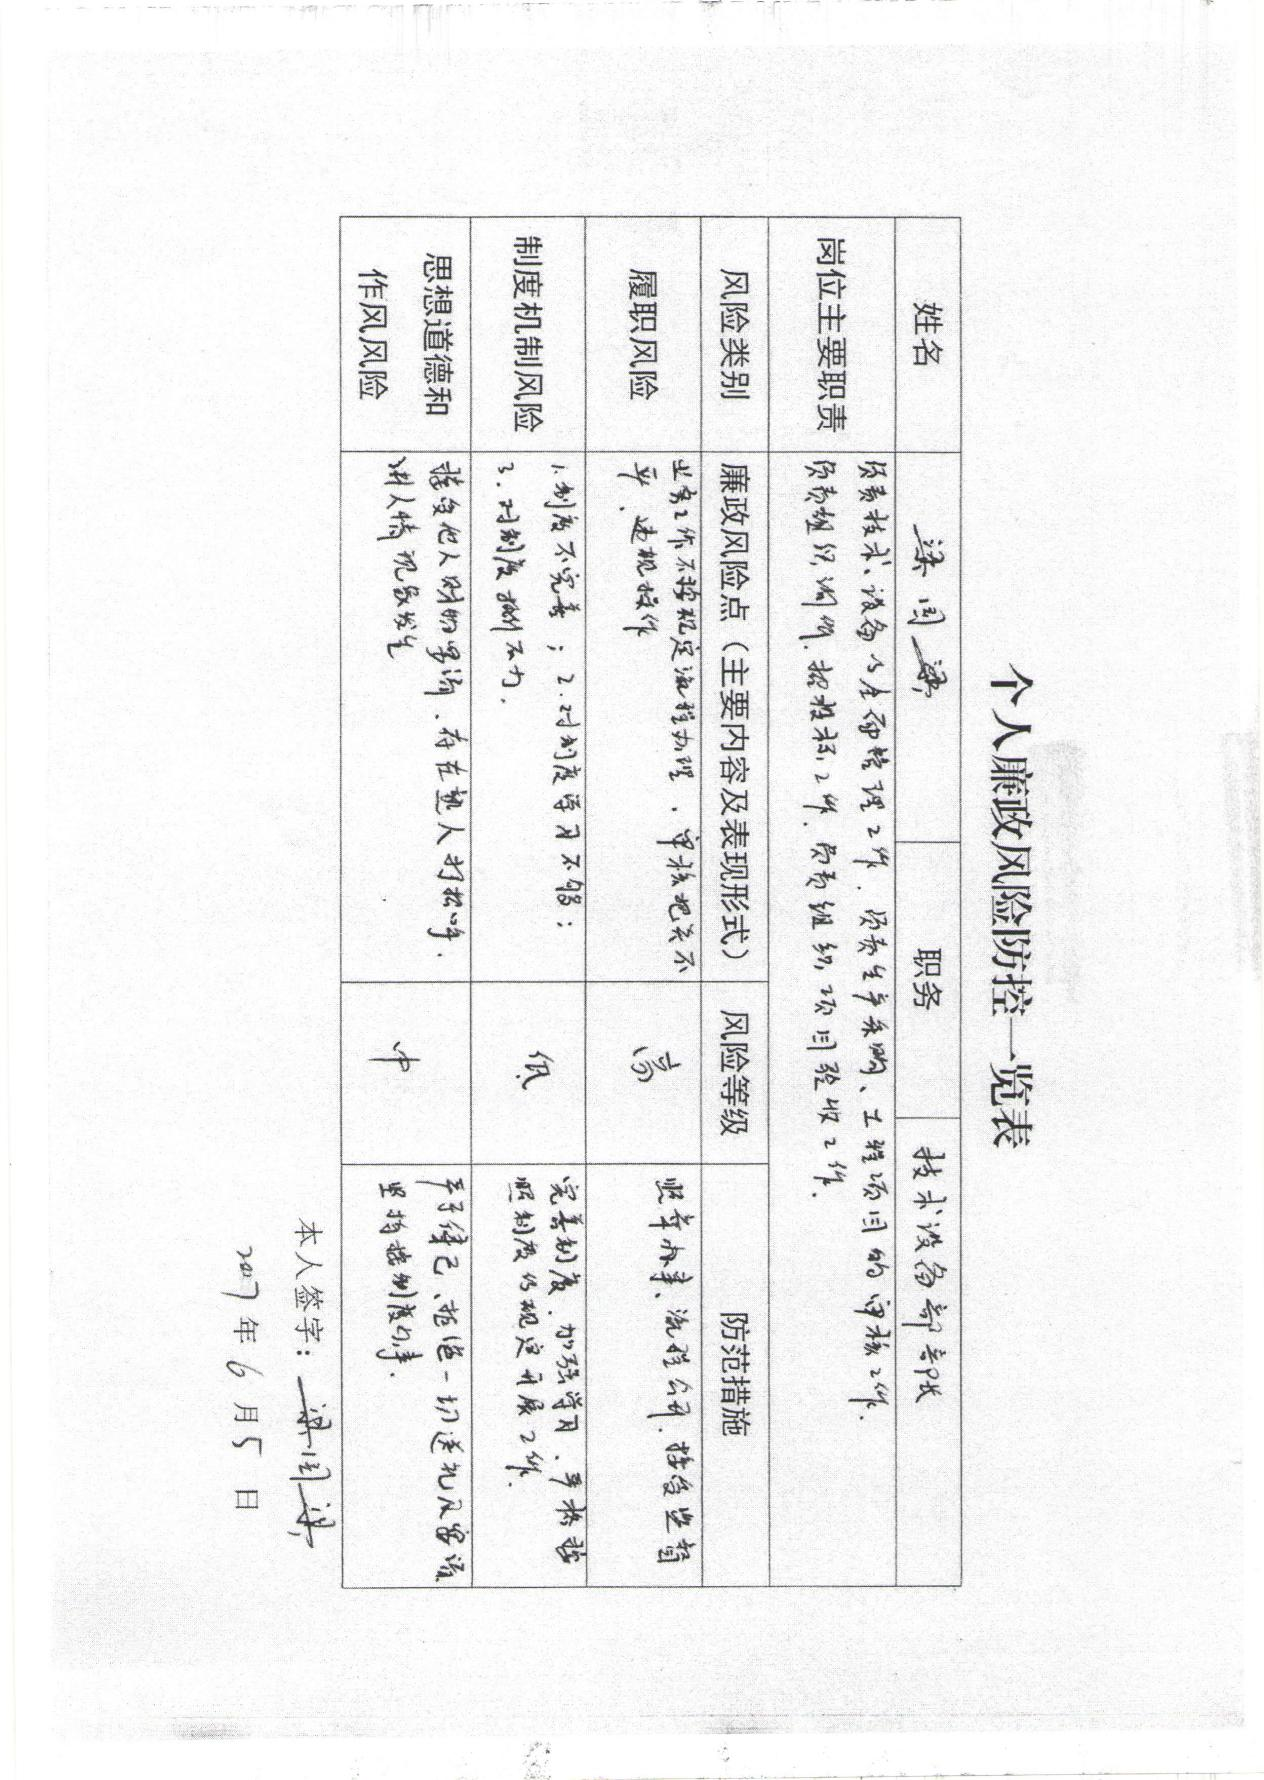 个人廉政风险防控一览表
姓名 梁国梁 职务 技术设备部部长
岗位主要职责 负责技术、设备与全面管理工作. 负责生产采购、工程项目的审核工作.
负责组织, 询价. 招投标, 工作. 负责组织, 项目验收工作.
风险类别 廉政风险点（主要内容及表现形式） 风险等级 防范措施
履职风险 业务工作不按规定流程办理、审核把关不
严、违规操作 高 照章办事、流程公开. 接受监督
制度机制风险 1. 制度不完善； 2. 对制度学习不够；
3. 对制度执行不力. 低 完善制度. 加强学习. 严格按
照制度的规定开展工作.
思想道德和
作风风险 接受他人财物宴请、存在熟人打招呼.
讲人情现象发生 中 严于律己、拒绝一切送礼及宴请
坚持按制度办事.
本人签字： 梁国梁
2017年6月5日